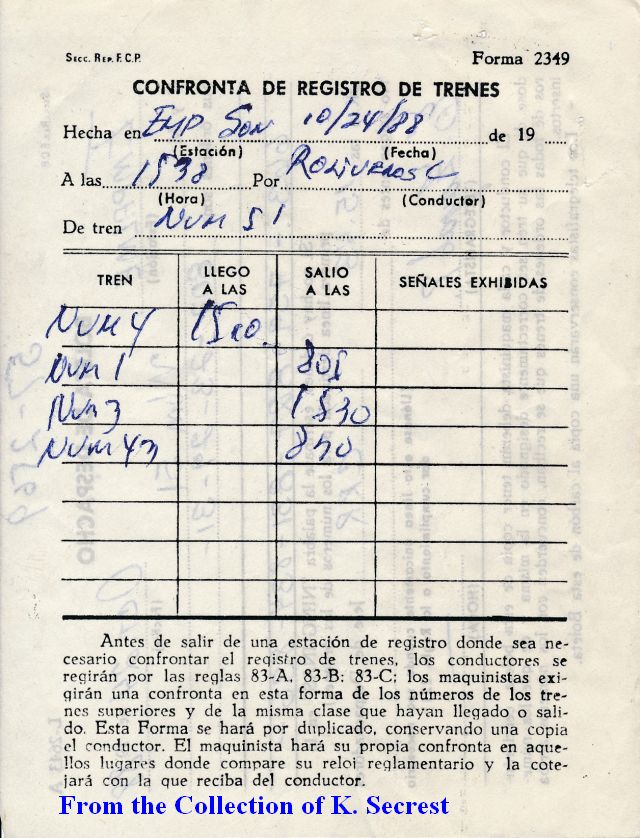 SECC. REP. F.C.P. Forma 2349
CONFRONTA DE REGISTRO DE TRENES
Hecha en EMP SON 10/24/88 de 19
(Estación) (Fecha)
A las 1538 Por
(Hora) (Conductor)
De tren NUM 51
TREN LLEGO A LAS SALIO A LAS SEÑALES EXHIBIDAS
NUM 4 1510
NUM 1 801
NUM 3 1530
NUM 43 850
Antes de salir de una estación de registro donde sea ne-
cesario confrontar el registro de trenes, los conductores se
regirán por las reglas 83-A, 83-B; 83-C; los maquinistas exi-
girán una confronta en esta forma de los números de los tre-
nes superiores y de la misma clase que hayan llegado o sali-
do. Esta Forma se hará por duplicado, conservando una copia
el conductor. El maquinista hará su propia confronta en aque-
llos lugares donde compare su reloj reglamentario y la cote-
jará con la que reciba del conductor.
From the Collection of K. Secrest